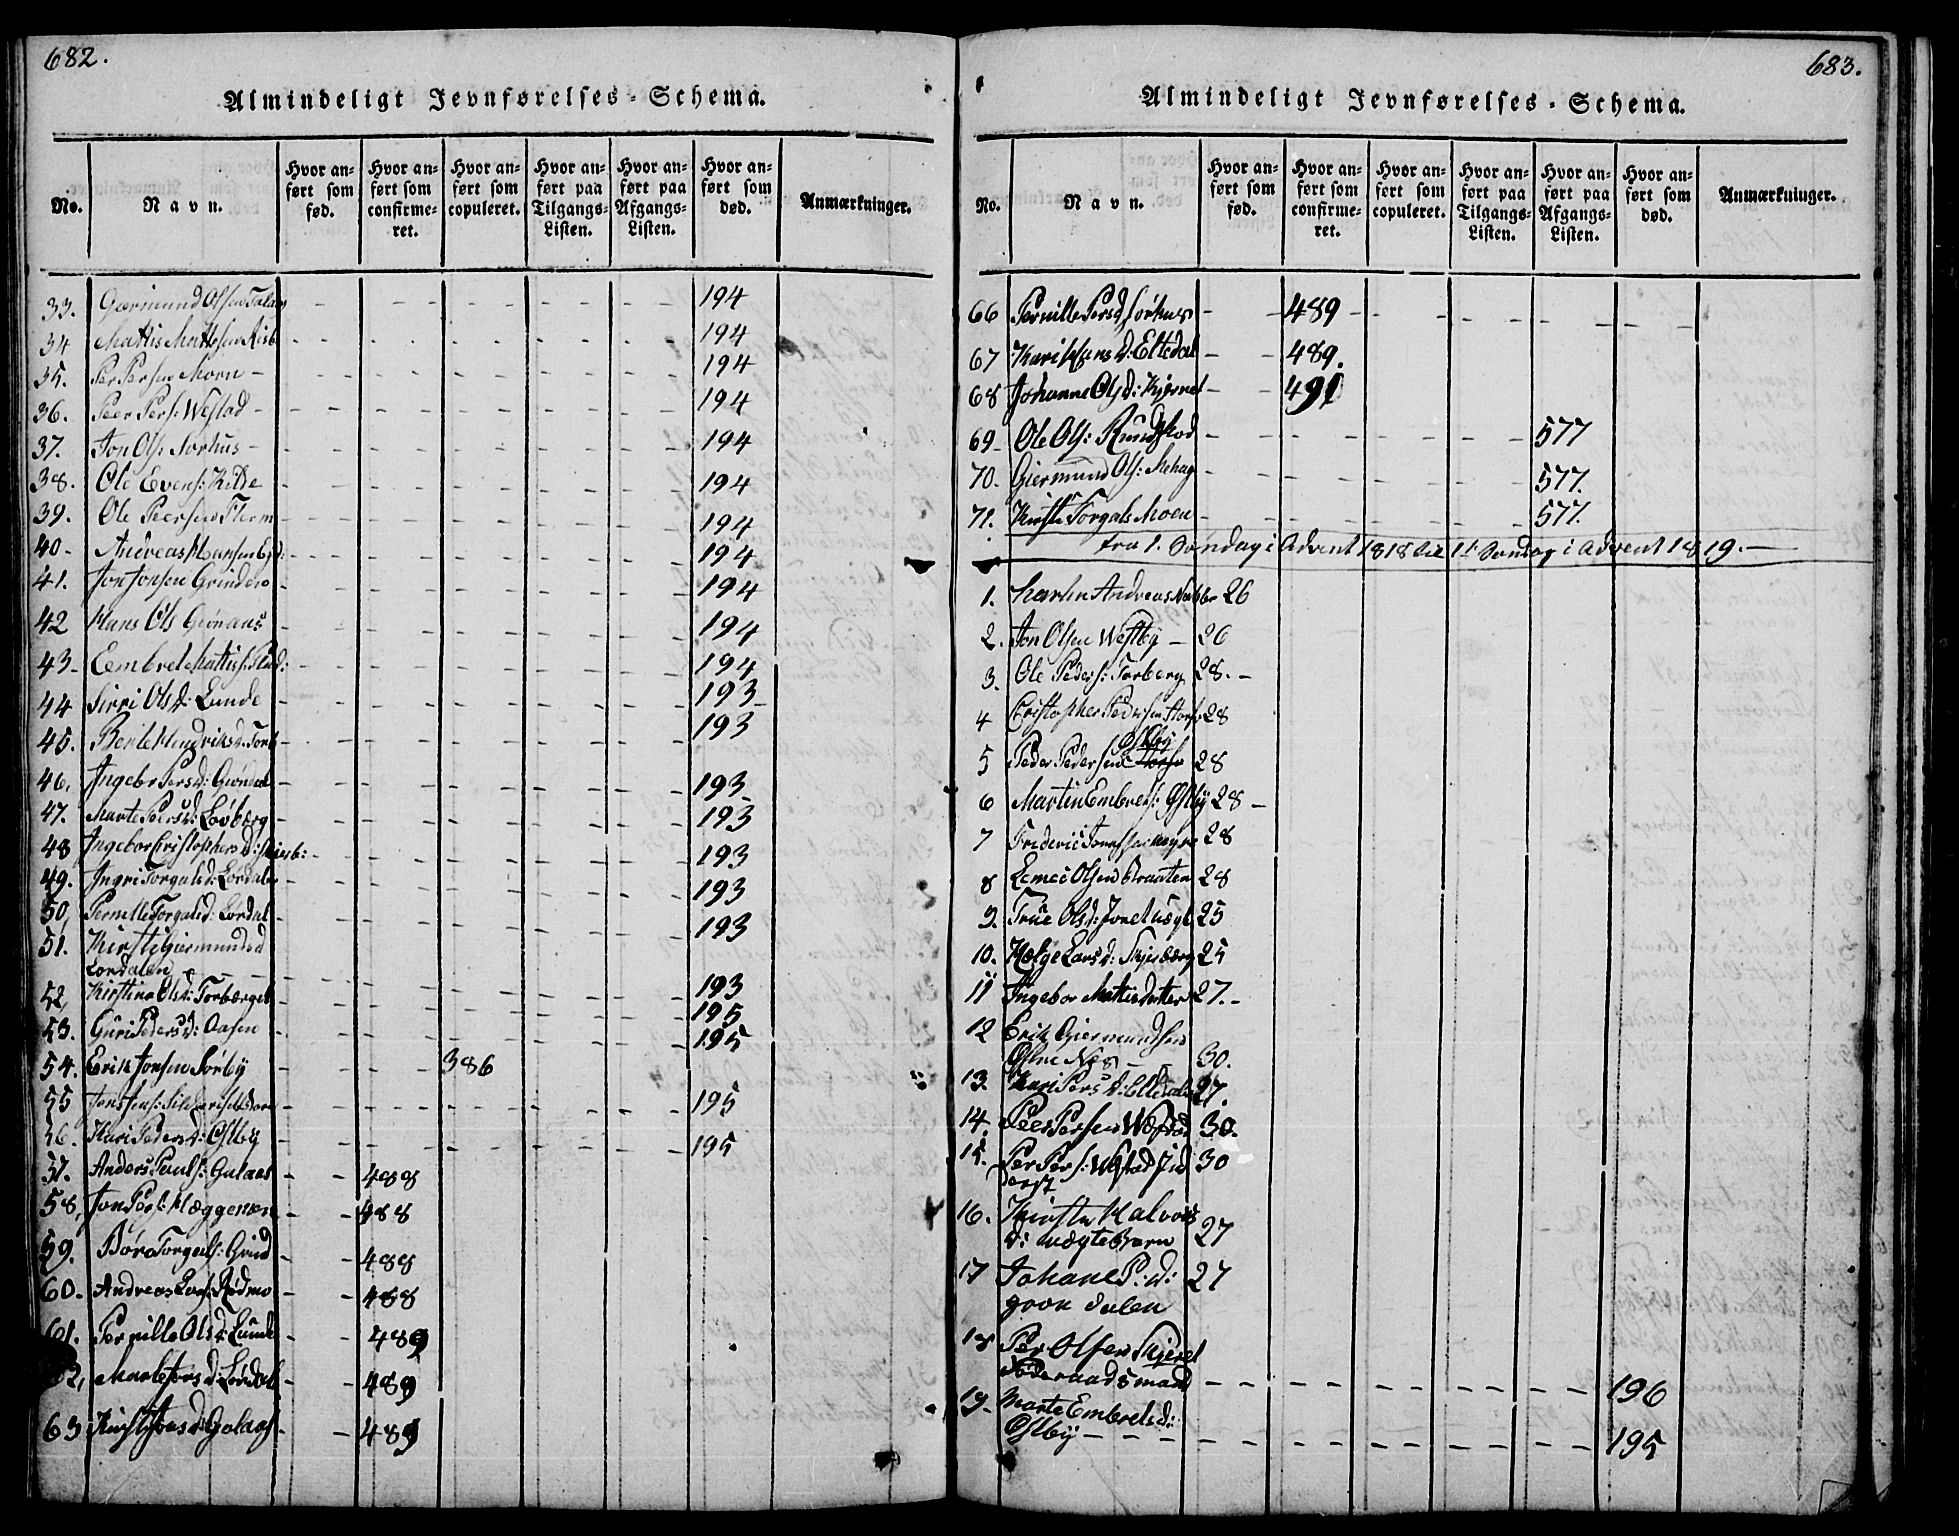 682.
Almindeligt Jevnførelses-Schema.
No. Navn. Hvor anført som fød. Hvor anført som confirmeret. Hvor anført som copuleret. Hvor anført paa Tilgangs-Listen. Hvor anført paa Afgangs-Listen. Hvor anført som død. Anmærkninger.
33. Giermund Olsen 194
34 Mattis Mattisen 194
35. Per Persen Moen 194
36. Peer Pers: Westad 194
37. Jon Ols: Sorhus 194
38. Ole Evens: Kilde 194
39. Ole Peersen 194
40 Andreas Hansen 194
41. Jon Jonsen Grindero 194
42 Hans Ols Grønaas 194
43 Embret Mattis: 194
44 Sirri Olsd: Lunde 193
45. Berte Hendriksd: Torb 193
46. Ingebor Persd: Grøndal 193
47. Marte Peersd: Lovbærg 193
48 Ingebor Cristophersd: 193
49. Ingri Torgalsd: Lørdalen 193
50, Pernille Torgalsd: Lordal 193
51. Kirsti Giermundsd
Lordalen 193
52 Kirstine Olsd: Torbærget 195
53. Guri Pedersd: Aasen 195
54. Erik Jonsen Sorby 386
55 Jens Jens: 195
56. Kari Pedersd: Østby 195
57. Anders Pauls: Galaas 488
58, Jon Pers: Hæggemoen 488
59. Børe Torgals: Grind 488
60. Andreas Lars: Rødmo 488
61. Pernille Olsd: Lunde 489
62, Marte Jonsd: Lørdal 489
63 Kirsti Jonsd: Galaas 489
683.
Almindeligt Jevnførelses-Schema.
No. Navn. Hvor anført som fød. Hvor anført som confirmeret. Hvor anført som copuleret. Hvor anført paa Tilgangs-Listen. Hvor anført paa Afgangs-Listen. Hvor anført som død. Anmærkninger.
66 Pernille Persd Sorhus 489
67 Kari Hansd: Eltedal 489.
68 Johanne Olsd: 491
69 Ole Ols: Rundflod 577
70. Giermund Ols: 577.
71. Kirsti Torgals Moen 577.
fra 1. Søndag i Advent 1818 til 1. Søndag i Advent 1819.
1. Martin Andreas 26
2. Jon Olsen Westby 26
3. Ole Peders: Torberg 28.
4 Cristopher Pedersen 28
Østby
5 Peder Pedersen 28
6 Martin Embrets: Østby 28
7 Frederic 28
8 Olsen Braaten 28
9. True Olsd: 25
10. Helge Larsd: Skjærbærg 25
11 Ingebor Mattisdatter 27.
12 Erik Giermundsen
Østre Næs 30.
13. Kari Persd: Eltedalen 27.
14. Peer Persen Westad 30.
15. Per Pers: Westad
30
16. Kirsti Halvors
d: uægte Barn 27
17 Johane P:d: 27
grøn dalen
18 Per Olsen
Føderaadsmand 196
19. Marte Embretsd:
Østby 195